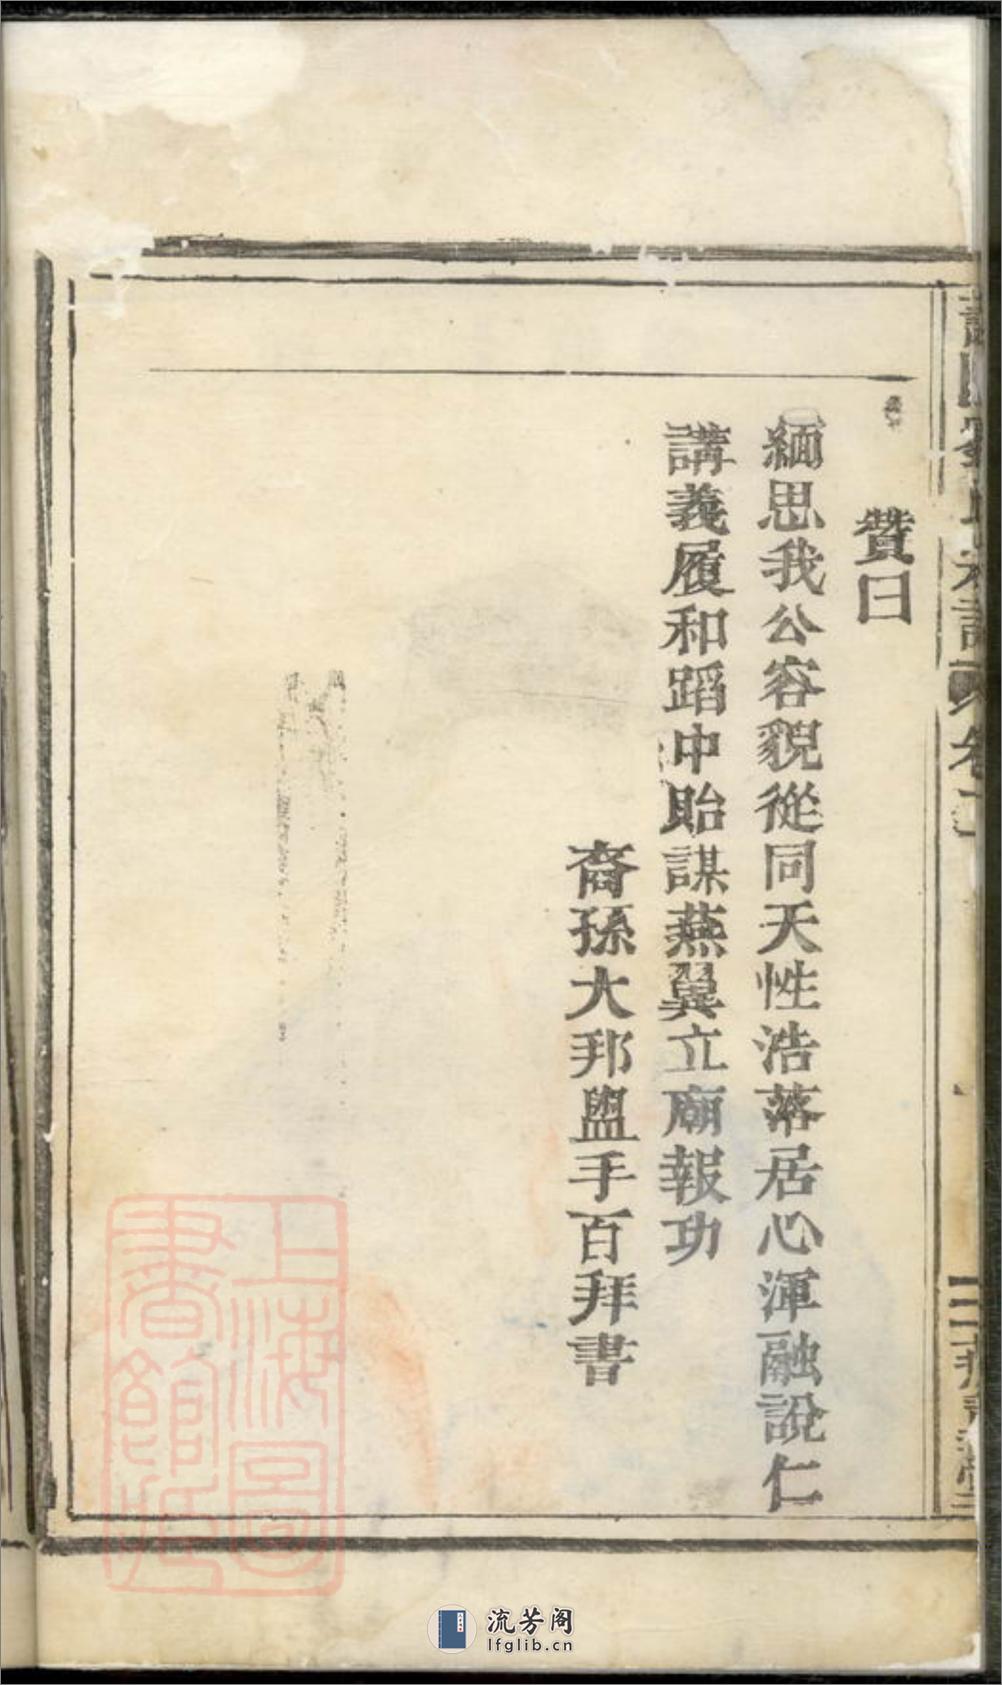 贊曰
緬思我公容貌從同天性浩落居心渾融說仁
講義履和蹈中貽謀燕翼立廟報功
裔孫大邦盥手百拜書
上海圖
書館藏
流芳阁
lfglib.cn